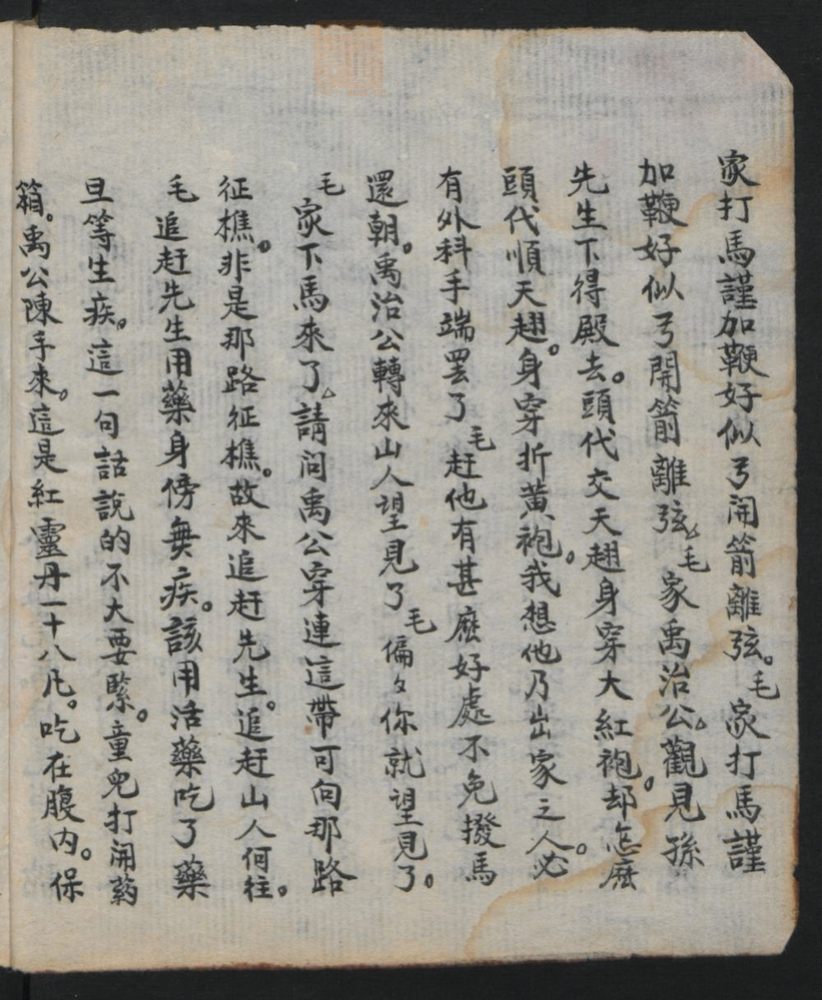 家打馬謹加鞭好似弓開箭離弦。毛家打馬謹
加鞭好似弓開箭離弦毛家禹治公觀見孫
先生下得殿去。頭代交天翅身穿大紅袍。却怎麽
頭代順天翅。身穿折黃袍。我想他乃出家之人。必
有外科手端罢了毛赶他有甚麽好處不免撥馬
還朝。禹治公轉來山人望見了毛偏々你就望見了。
毛家下馬來了請问禹公穿連這帶可向那路
征樵。非是那路征樵。故來追赶先生。追赶山人何往。
毛追赶先生用藥身傍無疾。該用活藥吃了藥
旦等生疾。這一句話說的不大要緊。童兒打開葯
箱。禹公陳手來。這是紅靈丹一十八凡。吃在腹内。保